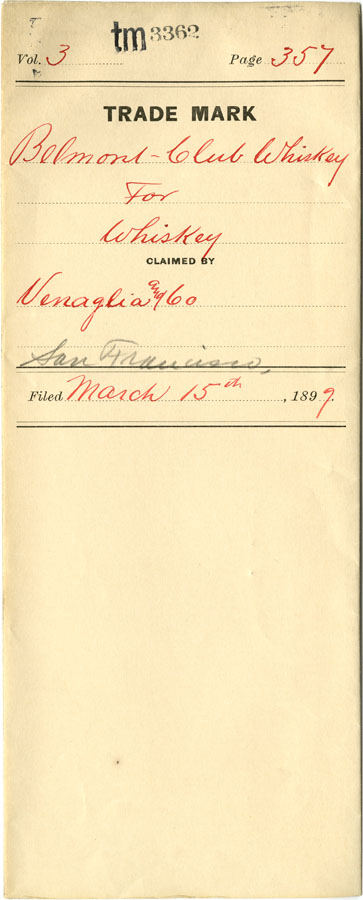 tm 3362
Vol. 3 Page 357
TRADE MARK
Belmont-Club Whiskey
For
Whiskey
CLAIMED BY
Venaglia and Co
San Francisco,
Filed March 15th, 1899.